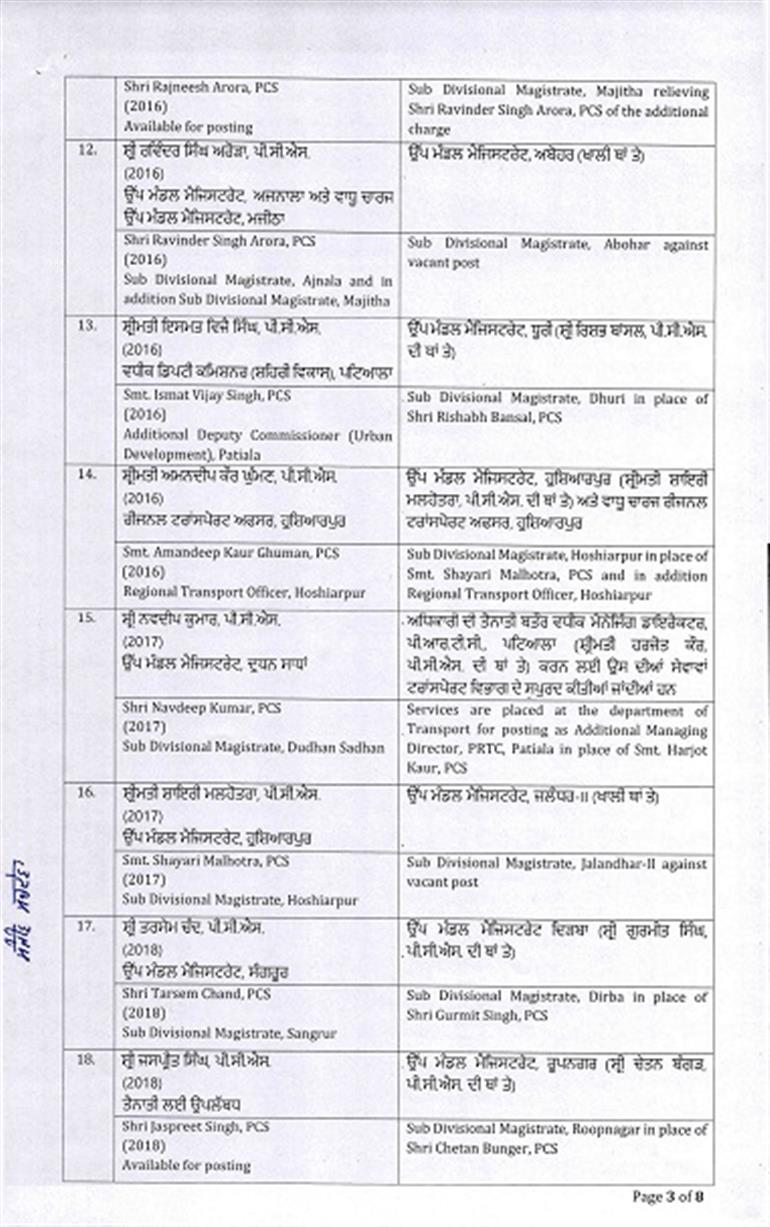 Shri Rajneesh Arora, PCS
(2016)
Available for posting
Sub Divisional Magistrate, Majitha relieving
Shri Ravinder Singh Arora, PCS of the additional
charge
12.
ਸ਼੍ਰੀ ਰਵਿੰਦਰ ਸਿੰਘ ਅਰੋੜਾ, ਪੀ.ਸੀ.ਐਸ.
(2016)
ਉੱਪ ਮੰਡਲ ਮੈਜਿਸਟਰੇਟ, ਅਜਨਾਲਾ ਅਤੇ ਵਾਧੂ ਚਾਰਜ
ਉੱਪ ਮੰਡਲ ਮੈਜਿਸਟਰੇਟ, ਮਜੀਠਾ
ਉੱਪ ਮੰਡਲ ਮੈਜਿਸਟਰੇਟ, ਅਬੋਹਰ (ਖਾਲੀ ਥਾਂ ਤੇ)
Shri Ravinder Singh Arora, PCS
(2016)
Sub Divisional Magistrate, Ajnala and in
addition Sub Divisional Magistrate, Majitha
Sub Divisional Magistrate, Abohar against
vacant post
13.
ਸ਼੍ਰੀਮਤੀ ਇਸਮਤ ਵਿਜੈ ਸਿੰਘ, ਪੀ.ਸੀ.ਐਸ.
(2016)
ਵਧੀਕ ਡਿਪਟੀ ਕਮਿਸ਼ਨਰ (ਸ਼ਹਿਰੀ ਵਿਕਾਸ), ਪਟਿਆਲਾ
ਉੱਪ ਮੰਡਲ ਮੈਜਿਸਟਰੇਟ, ਧੂਰੀ (ਸ਼੍ਰੀ ਰਿਸ਼ਭ ਬਾਂਸਲ, ਪੀ.ਸੀ.ਐਸ.
ਦੀ ਥਾਂ ਤੇ)
Smt. Ismat Vijay Singh, PCS
(2016)
Additional Deputy Commissioner (Urban
Development), Patiala
Sub Divisional Magistrate, Dhuri in place of
Shri Rishabh Bansal, PCS
14.
ਸ਼੍ਰੀਮਤੀ ਅਮਨਦੀਪ ਕੌਰ ਘੁੰਮਣ, ਪੀ.ਸੀ.ਐਸ.
(2016)
ਰੀਜਨਲ ਟਰਾਂਸਪੋਰਟ ਅਫਸਰ, ਹੁਸ਼ਿਆਰਪੁਰ
ਉੱਪ ਮੰਡਲ ਮੈਜਿਸਟਰੇਟ, ਹੁਸ਼ਿਆਰਪੁਰ (ਸ਼੍ਰੀਮਤੀ ਸ਼ਾਇਰੀ
ਮਲਹੋਤਰਾ, ਪੀ.ਸੀ.ਐਸ. ਦੀ ਥਾਂ ਤੇ) ਅਤੇ ਵਾਧੂ ਚਾਰਜ ਰੀਜਨਲ
ਟਰਾਂਸਪੋਰਟ ਅਫਸਰ, ਹੁਸ਼ਿਆਰਪੁਰ
Smt. Amandeep Kaur Ghuman, PCS
(2016)
Regional Transport Officer, Hoshiarpur
Sub Divisional Magistrate, Hoshiarpur in place of
Smt. Shayari Malhotra, PCS and in addition
Regional Transport Officer, Hoshiarpur
15.
ਸ਼੍ਰੀ ਨਵਦੀਪ ਕੁਮਾਰ, ਪੀ.ਸੀ.ਐਸ.
(2017)
ਉੱਪ ਮੰਡਲ ਮੈਜਿਸਟਰੇਟ, ਦੂਧਨ ਸਾਧਾਂ
ਅਧਿਕਾਰੀ ਦੀ ਤੈਨਾਤੀ ਬਤੌਰ ਵਧੀਕ ਮੈਨੇਜਿੰਗ ਡਾਇਰੈਕਟਰ,
ਪੀ.ਆਰ.ਟੀ.ਸੀ., ਪਟਿਆਲਾ (ਸ਼੍ਰੀਮਤੀ ਹਰਜੋਤ ਕੌਰ,
ਪੀ.ਸੀ.ਐਸ. ਦੀ ਥਾਂ ਤੇ) ਕਰਨ ਲਈ ਉਸ ਦੀਆਂ ਸੇਵਾਵਾਂ
ਟਰਾਂਸਪੋਰਟ ਵਿਭਾਗ ਦੇ ਸਪੁਰਦ ਕੀਤੀਆਂ ਜਾਂਦੀਆਂ ਹਨ
Shri Navdeep Kumar, PCS
(2017)
Sub Divisional Magistrate, Dudhan Sadhan
Services are placed at the department of
Transport for posting as Additional Managing
Director, PRTC, Patiala in place of Smt. Harjot
Kaur, PCS
16.
ਸ਼੍ਰੀਮਤੀ ਸ਼ਾਇਰੀ ਮਲਹੋਤਰਾ, ਪੀ.ਸੀ.ਐਸ.
(2017)
ਉੱਪ ਮੰਡਲ ਮੈਜਿਸਟਰੇਟ, ਹੁਸ਼ਿਆਰਪੁਰ
ਉੱਪ ਮੰਡਲ ਮੈਜਿਸਟਰੇਟ, ਜਲੰਧਰ-II (ਖਾਲੀ ਥਾਂ ਤੇ)
Smt. Shayari Malhotra, PCS
(2017)
Sub Divisional Magistrate, Hoshiarpur
Sub Divisional Magistrate, Jalandhar-II against
vacant post
17.
ਸ਼੍ਰੀ ਤਰਸੇਮ ਚੰਦ, ਪੀ.ਸੀ.ਐਸ.
(2018)
ਉੱਪ ਮੰਡਲ ਮੈਜਿਸਟਰੇਟ, ਸੰਗਰੂਰ
ਉੱਪ ਮੰਡਲ ਮੈਜਿਸਟਰੇਟ ਦਿੜਬਾ (ਸ਼੍ਰੀ ਗੁਰਮੀਤ ਸਿੰਘ,
ਪੀ.ਸੀ.ਐਸ. ਦੀ ਥਾਂ ਤੇ)
Shri Tarsem Chand, PCS
(2018)
Sub Divisional Magistrate, Sangrur
Sub Divisional Magistrate, Dirba in place of
Shri Gurmit Singh, PCS
18.
ਸ਼੍ਰੀ ਜਸਪ੍ਰੀਤ ਸਿੰਘ, ਪੀ.ਸੀ.ਐਸ.
(2018)
ਤੈਨਾਤੀ ਲਈ ਉਪਲੱਬਧ
ਉੱਪ ਮੰਡਲ ਮੈਜਿਸਟਰੇਟ, ਰੂਪਨਗਰ (ਸ਼੍ਰੀ ਚੇਤਨ ਬੰਗੜ,
ਪੀ.ਸੀ.ਐਸ. ਦੀ ਥਾਂ ਤੇ)
Shri Jaspreet Singh, PCS
(2018)
Available for posting
Sub Divisional Magistrate, Roopnagar in place of
Shri Chetan Bunger, PCS
Page 3 of 8